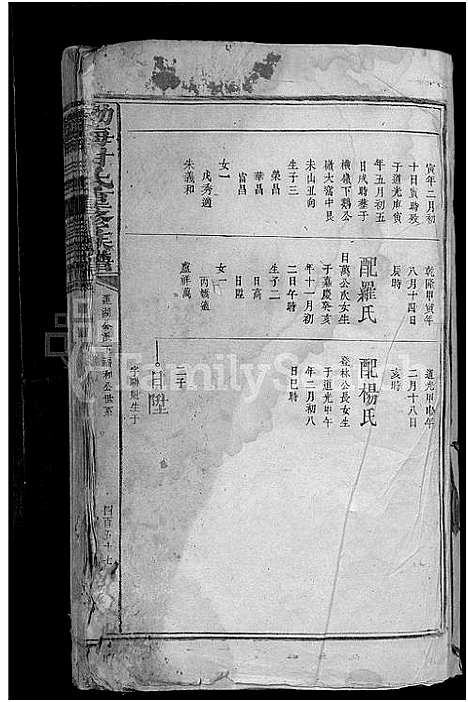 寅年二月初
十日寅時歿
于道光庚寅
年五月初五
日戌時葬于
橫嶺下鵝公
嶺大窩中艮
未山丑向
生子三
榮昌
華昌
富昌
女一
戊秀適
朱義和
乾隆甲寅年
八月十四日
辰時
配羅氏
日萬公次女生
于嘉慶癸亥
年十一月初
二日午時
生子二
日高
日陞
女一
丙嬌適
盧祥萬
道光甲申年
二月十八日
亥時
配楊氏
登林公長女生
于道光甲午
年二月初八
日巳時
二子
日陞
生于
四百五十七
FamilySearch